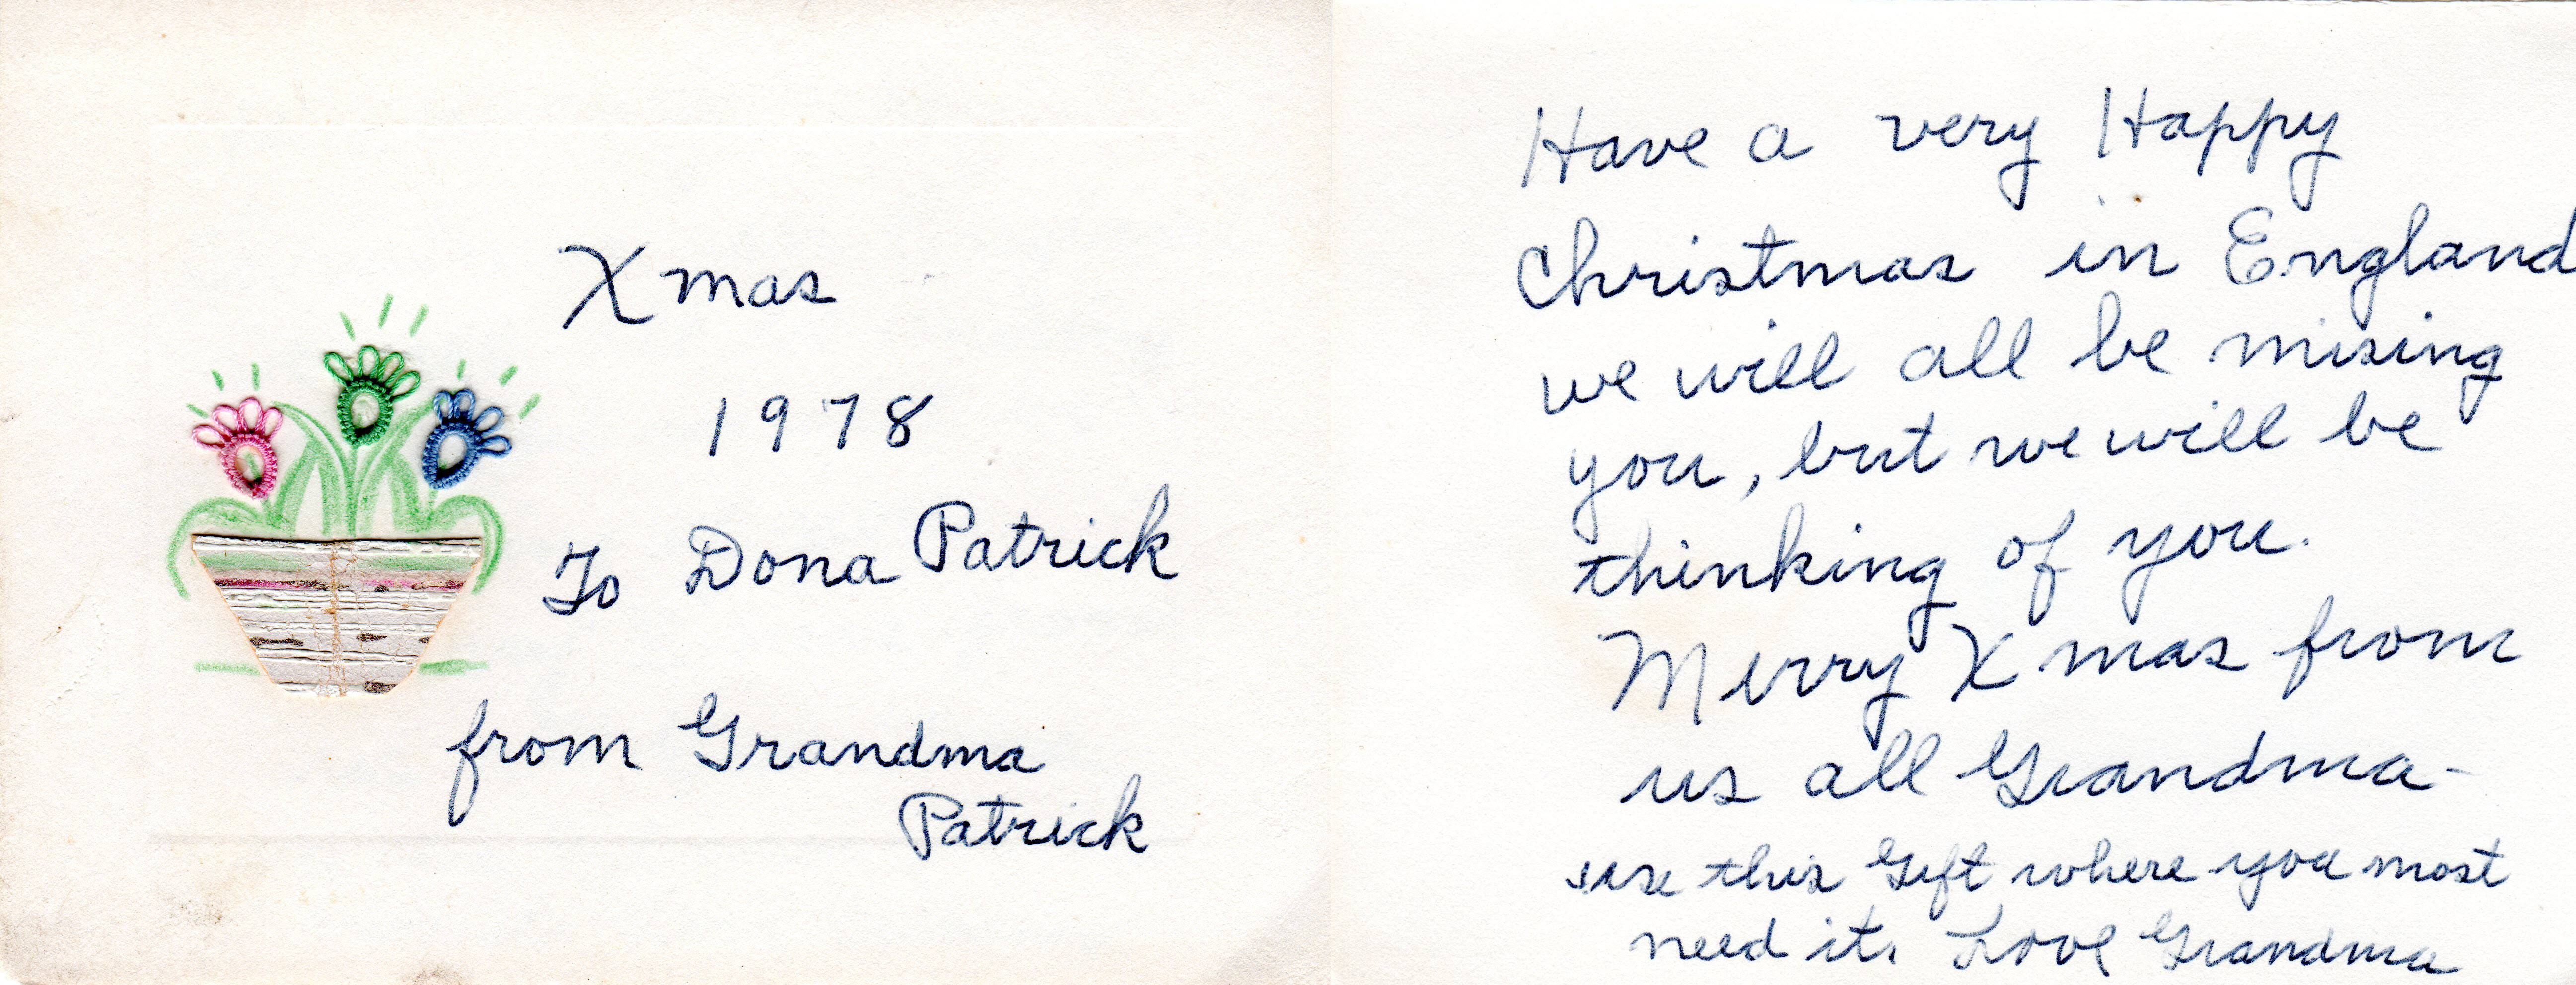 Xmas
1978
To Dona Patrick
from Grandma
Patrick
Have a very Happy
Christmas in England
we will all be mising
you, but we will be
thinking of you.
Merry Xmas from
us all Grandma-
use this Gift where you most
need it. Love Grandma